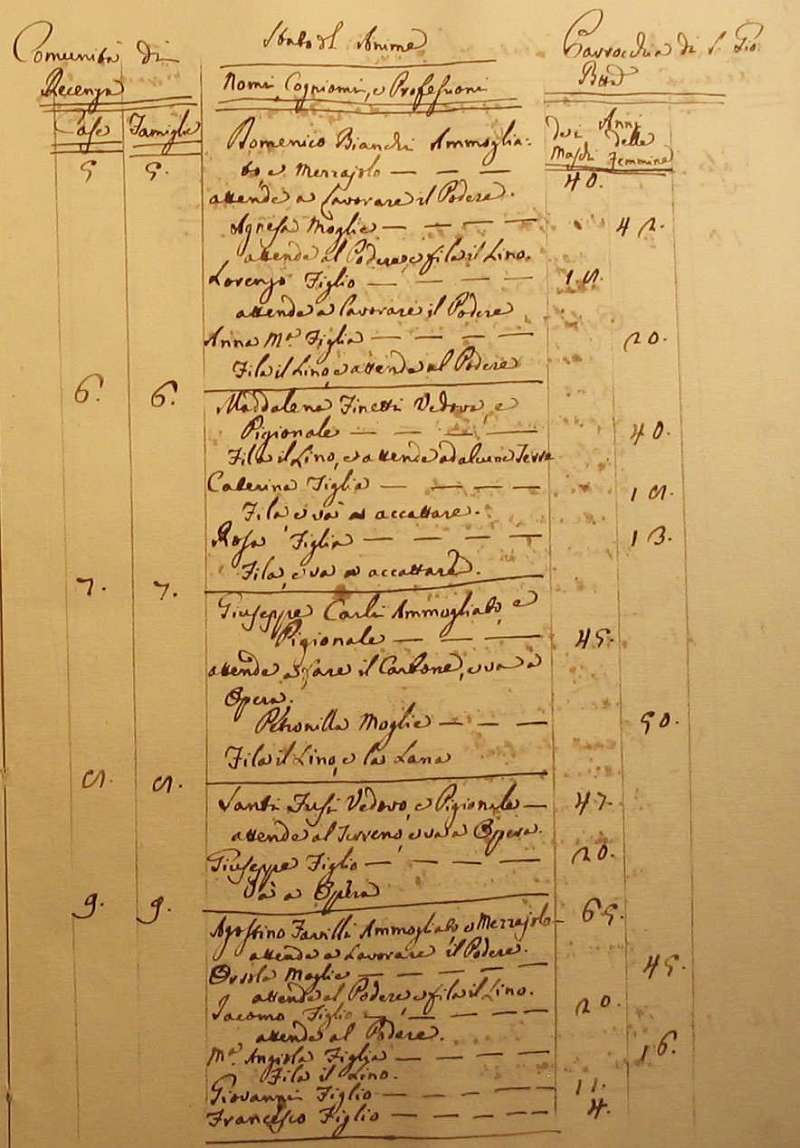 Comunità di
Recenza
Stato dl Anime
Parrocchia di S. Gio.
Batta
Nomi, Cogniomi, e Professioni
Case Famiglie
Anni
dei delle
Maschi Femmine
5 5. Domenico Bianchi Ammoglia:
to, e Mezzajolo — — — 40.
attende a Lavorare il Podere.
Agnesa Moglie — — — — 42.
attende al Podere, e fila il Lino.
Lorenzo Figlio — — — — 18.
attende a lavorare il Podere
Anna Mª. Figlia — — — — 20.
Fila il Lino, e attende al Podere
6. 6. Maddalena Finetti Vedova, e
Pigionale — — — — 40.
Fila il Lino, e attende ad alcune Terre
Caterina Figlia — — — — 18.
Fila e và ad accattare.
Rosa Figlia — — — — 13.
Fila, e va a accattare.
7. 7. Giuseppe Carli Ammogliato, e
Pigionale — — — — 45.
attende a fare il Carbone, e va a
Opera.
Petronilla Moglie — — — 50.
Fila il Lino, e la Lana
8. 8. Santi Fusi Vedovo, e Pigionale — 47.
attende al Terreno, e va a Opera.
Giuseppe Figlio — — — — 20.
Và a Opera
9. 9. Agostino Favilli Ammogliato, e Mezzajolo — 65.
attende a Lavorare il Podere.
Orsola Moglie — — — — 45.
attende al Podere e fila il Lino.
Jacomo Figlio — — — — 20.
attende al Podere.
Mª. Angiola Figlia — — — — 16.
Fila il Lino.
Giovanni Figlio — — — — 11.
Francesco Figlio — — — — 4.